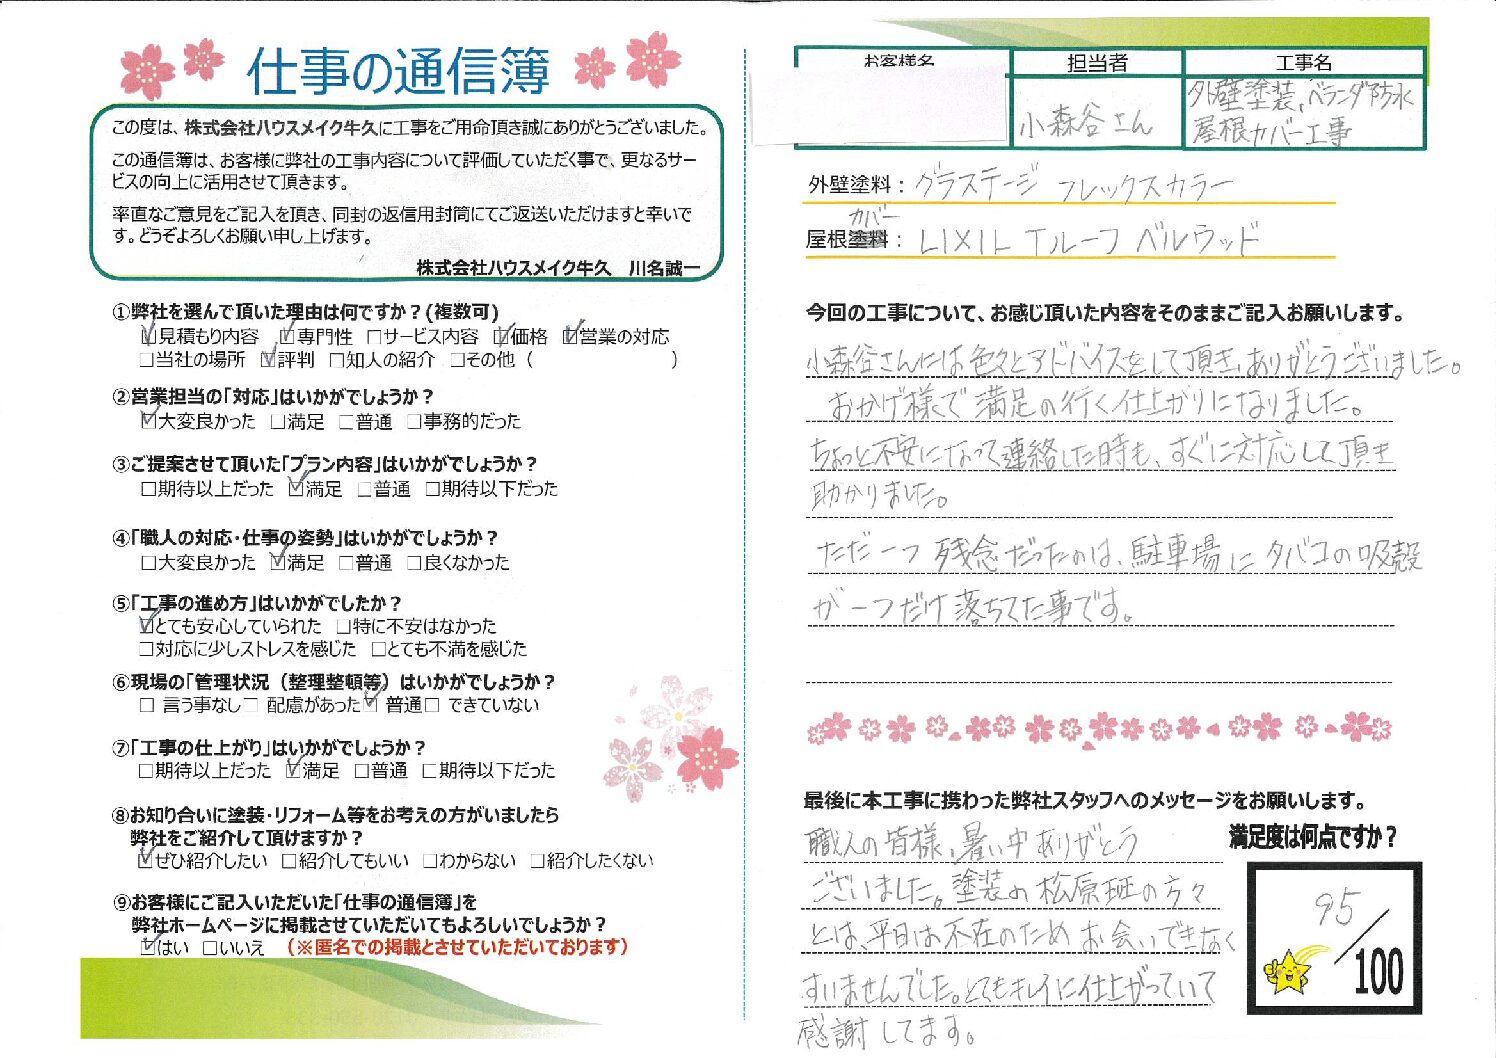 仕事の通信簿
この度は、株式会社ハウスメイク牛久に工事をご用命頂き誠にありがとうございました。
この通信簿は、お客様に弊社の工事内容について評価していただく事で、更なるサー
ビスの向上に活用させて頂きます。
率直なご意見をご記入を頂き、同封の返信用封筒にてご返送いただけますと幸いで
す。どうぞよろしくお願い申し上げます。
株式会社ハウスメイク牛久　川名誠一
①弊社を選んで頂いた理由は何ですか？(複数可)
☑見積もり内容 ☑専門性 □サービス内容 ☑価格 ☑営業の対応
□当社の場所 ☑評判 □知人の紹介 □その他（　　　　　　　）
②営業担当の「対応」はいかがでしょうか？
☑大変良かった □満足 □普通 □事務的だった
③ご提案させて頂いた「プラン内容」はいかがでしょうか？
□期待以上だった ☑満足 □普通 □期待以下だった
④「職人の対応・仕事の姿勢」はいかがでしょうか？
□大変良かった ☑満足 □普通 □良くなかった
⑤「工事の進め方」はいかがでしたか？
☑とても安心していられた □特に不安はなかった
□対応に少しストレスを感じた □とても不満を感じた
⑥現場の「管理状況（整理整頓等）はいかがでしょうか？
□ 言う事なし□ 配慮があった☑ 普通□ できていない
⑦「工事の仕上がり」はいかがでしょうか？
□期待以上だった ☑満足 □普通 □期待以下だった
⑧お知り合いに塗装・リフォーム等をお考えの方がいましたら
弊社をご紹介して頂けますか？
☑ぜひ紹介したい □紹介してもいい □わからない □紹介したくない
⑨お客様にご記入いただいた「仕事の通信簿」を
弊社ホームページに掲載させていただいてもよろしいでしょうか？
☑はい □いいえ （※匿名での掲載とさせていただいております）
お客様名 担当者 工事名
小森谷さん
外壁塗装、ベランダ防水
屋根カバー工事
外壁塗料： グラステージ フレックスカラー
カバー
屋根塗料： LIXIL Tルーフ ベルウッド
今回の工事について、お感じ頂いた内容をそのままご記入お願いします。
小森谷さんには色々とアドバイスをして頂き、ありがとうございました。
おかげ様で満足の行く仕上がりになりました。
ちょっと不安になって連絡した時も、すぐに対応して頂き
助かりました。
ただ一つ残念だったのは、駐車場にタバコの吸殻
が一つだけ落ちてた事です。
最後に本工事に携わった弊社スタッフへのメッセージをお願いします。
満足度は何点ですか？
職人の皆様、暑い中ありがとう
ございました。塗装の松原班の方々
とは、平日は不在のためお会いできなく
すいませんでした。とてもキレイに仕上がっていて
感謝してます。
95/100